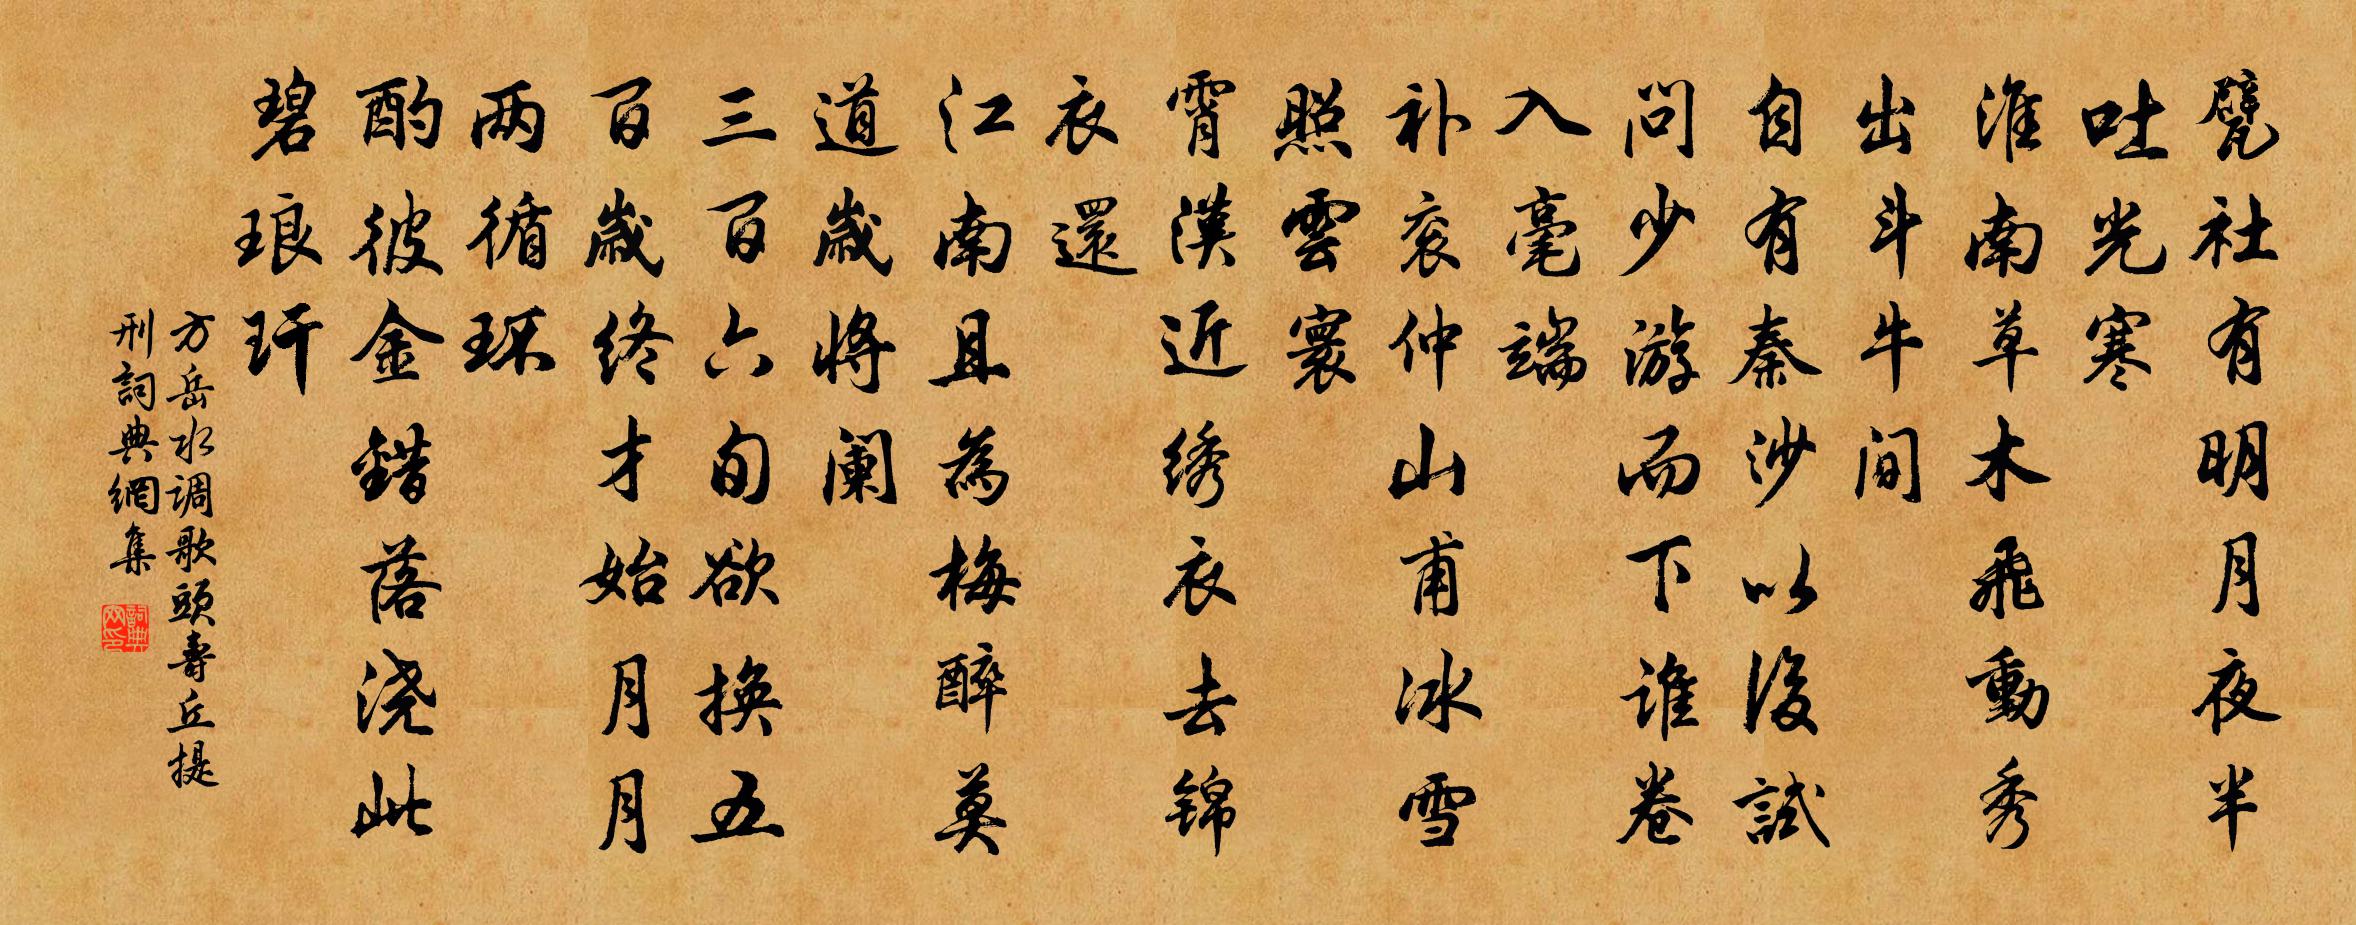 甓社有明月夜半
吐光寒
淮南草木飛動秀
出斗牛间
自有秦沙以後試
问少游而下谁卷
入毫端
补衮仲山甫冰雪
照雲寰
霄漢近绣衣去锦
衣還
江南且為梅醉莫
道歲将阑
三百六旬欲换五
百歲终才始月月
两循环
酌彼金錯落浇此
碧琅玕
方岳水调歌頭壽丘提
刑詞典網集
詞典网印